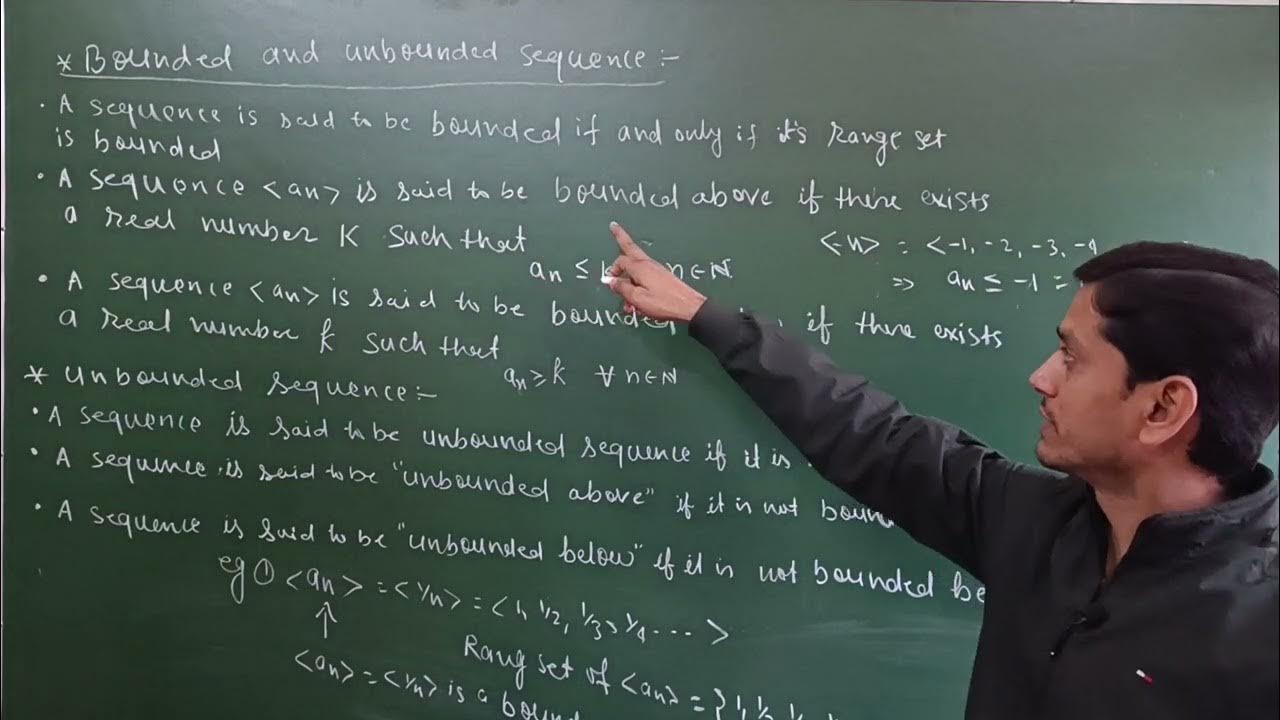 * Bounded and unbounded sequence :-
· A sequence is said to be bounded if and only if it's range set
is bounded
· A sequence <an> is said to be bounded above if there exists
a real number K such that
an ≤ k n∈N
<-n> = <-1, -2, -3, -4
⇒ an ≤ -1 =
· A sequence <an> is said to be bounded if there exists
a real number k such that
an ≥ k ∀ n∈N
* Unbounded sequence :-
· A sequence is said to be unbounded sequence if it is
· A sequence is said to be "unbounded above" if it is not boun
· A sequence is said to be "unbounded below" if it is not bounded be
eg ① <an> = <1/n> = <1, 1/2, 1/3, 1/4 ... >
↑
Rang set of <an> = {1, 1/2, 1/3
<an> = <1/n> is a boun